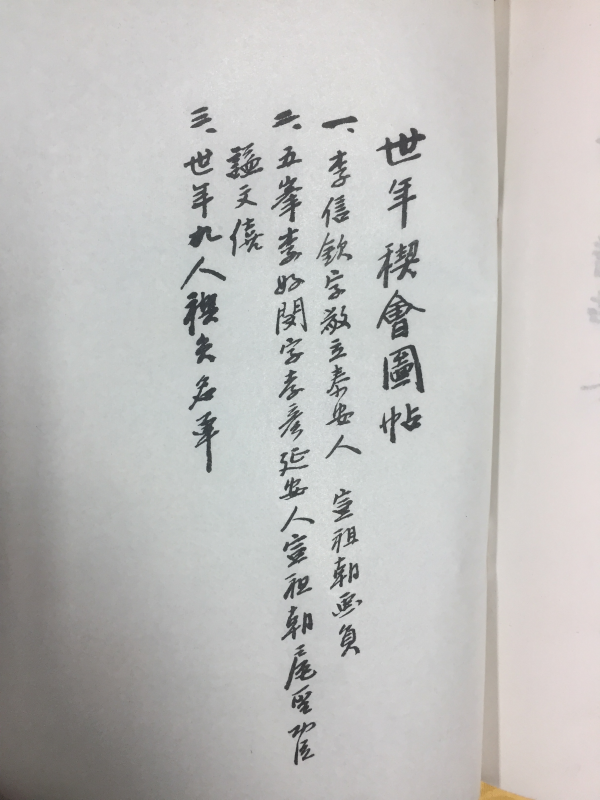 世年稧會圖帖
一、李信欽字敬立泰安人 宣祖朝画員
二、五峯李好閔字孝彦延安人宣祖朝扈聖功臣
謚文僖
三、世年九人稧矣名單